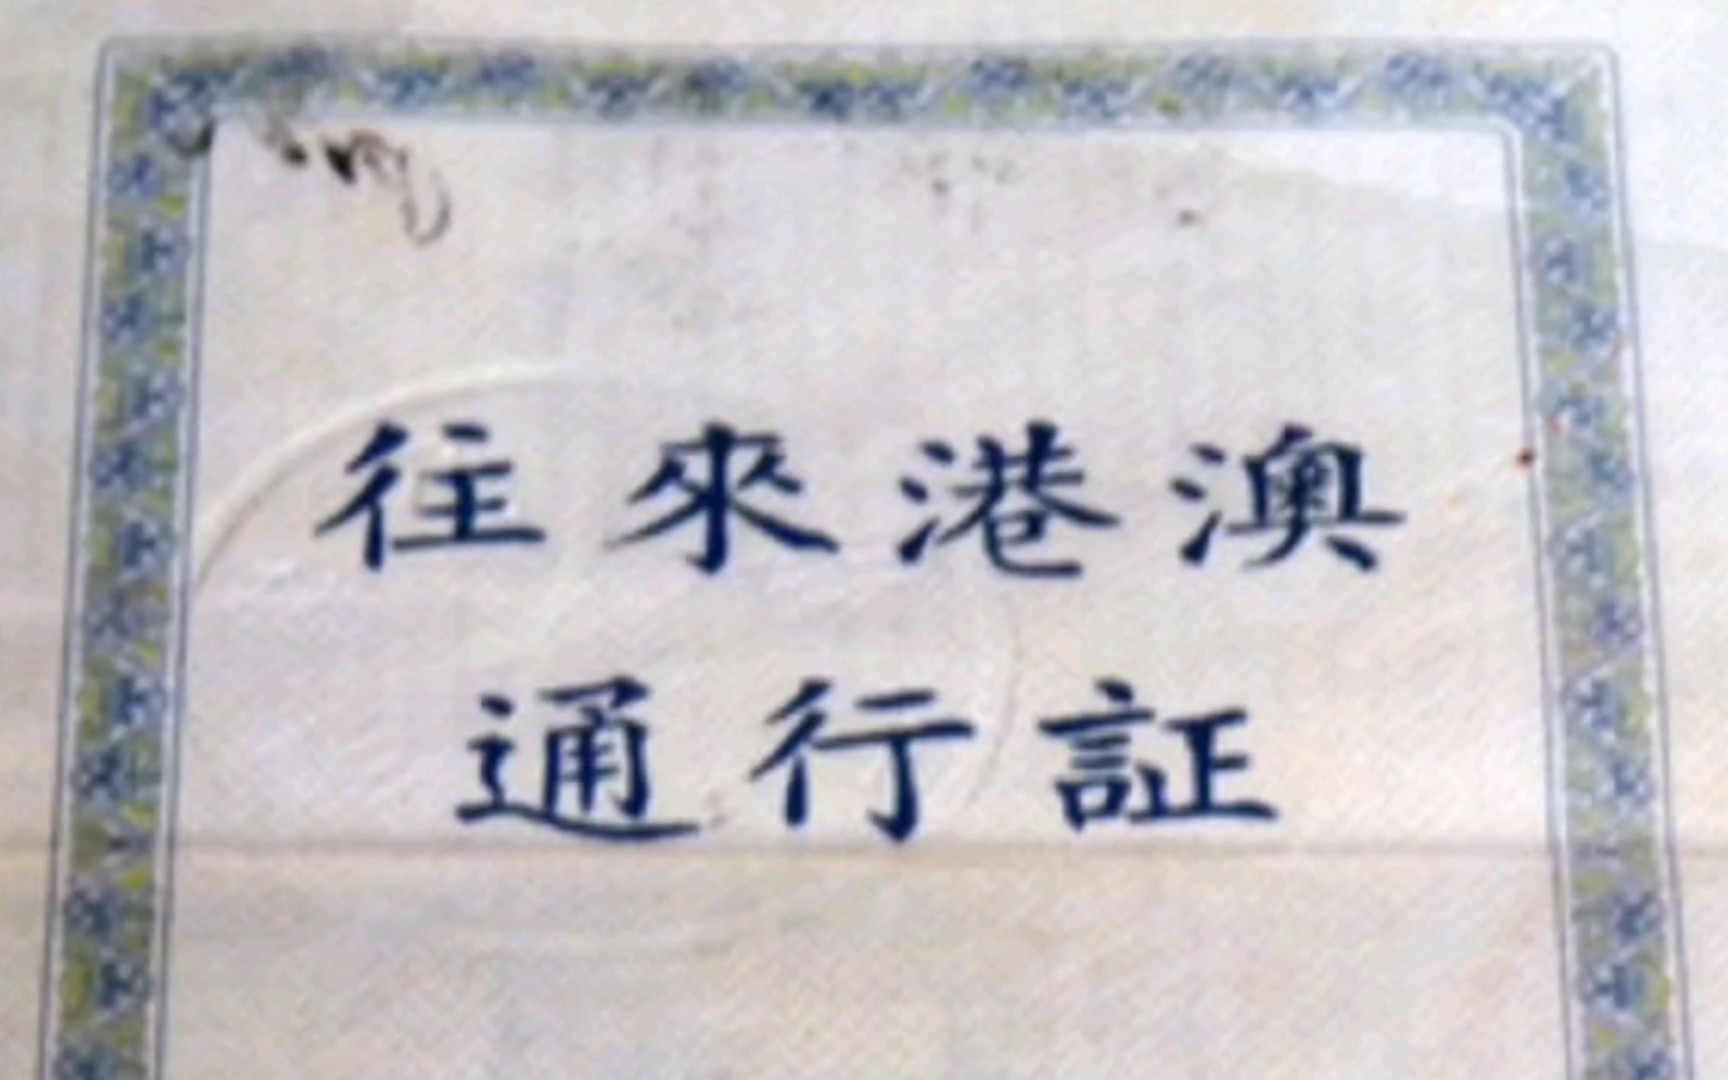 往來港澳
通行証